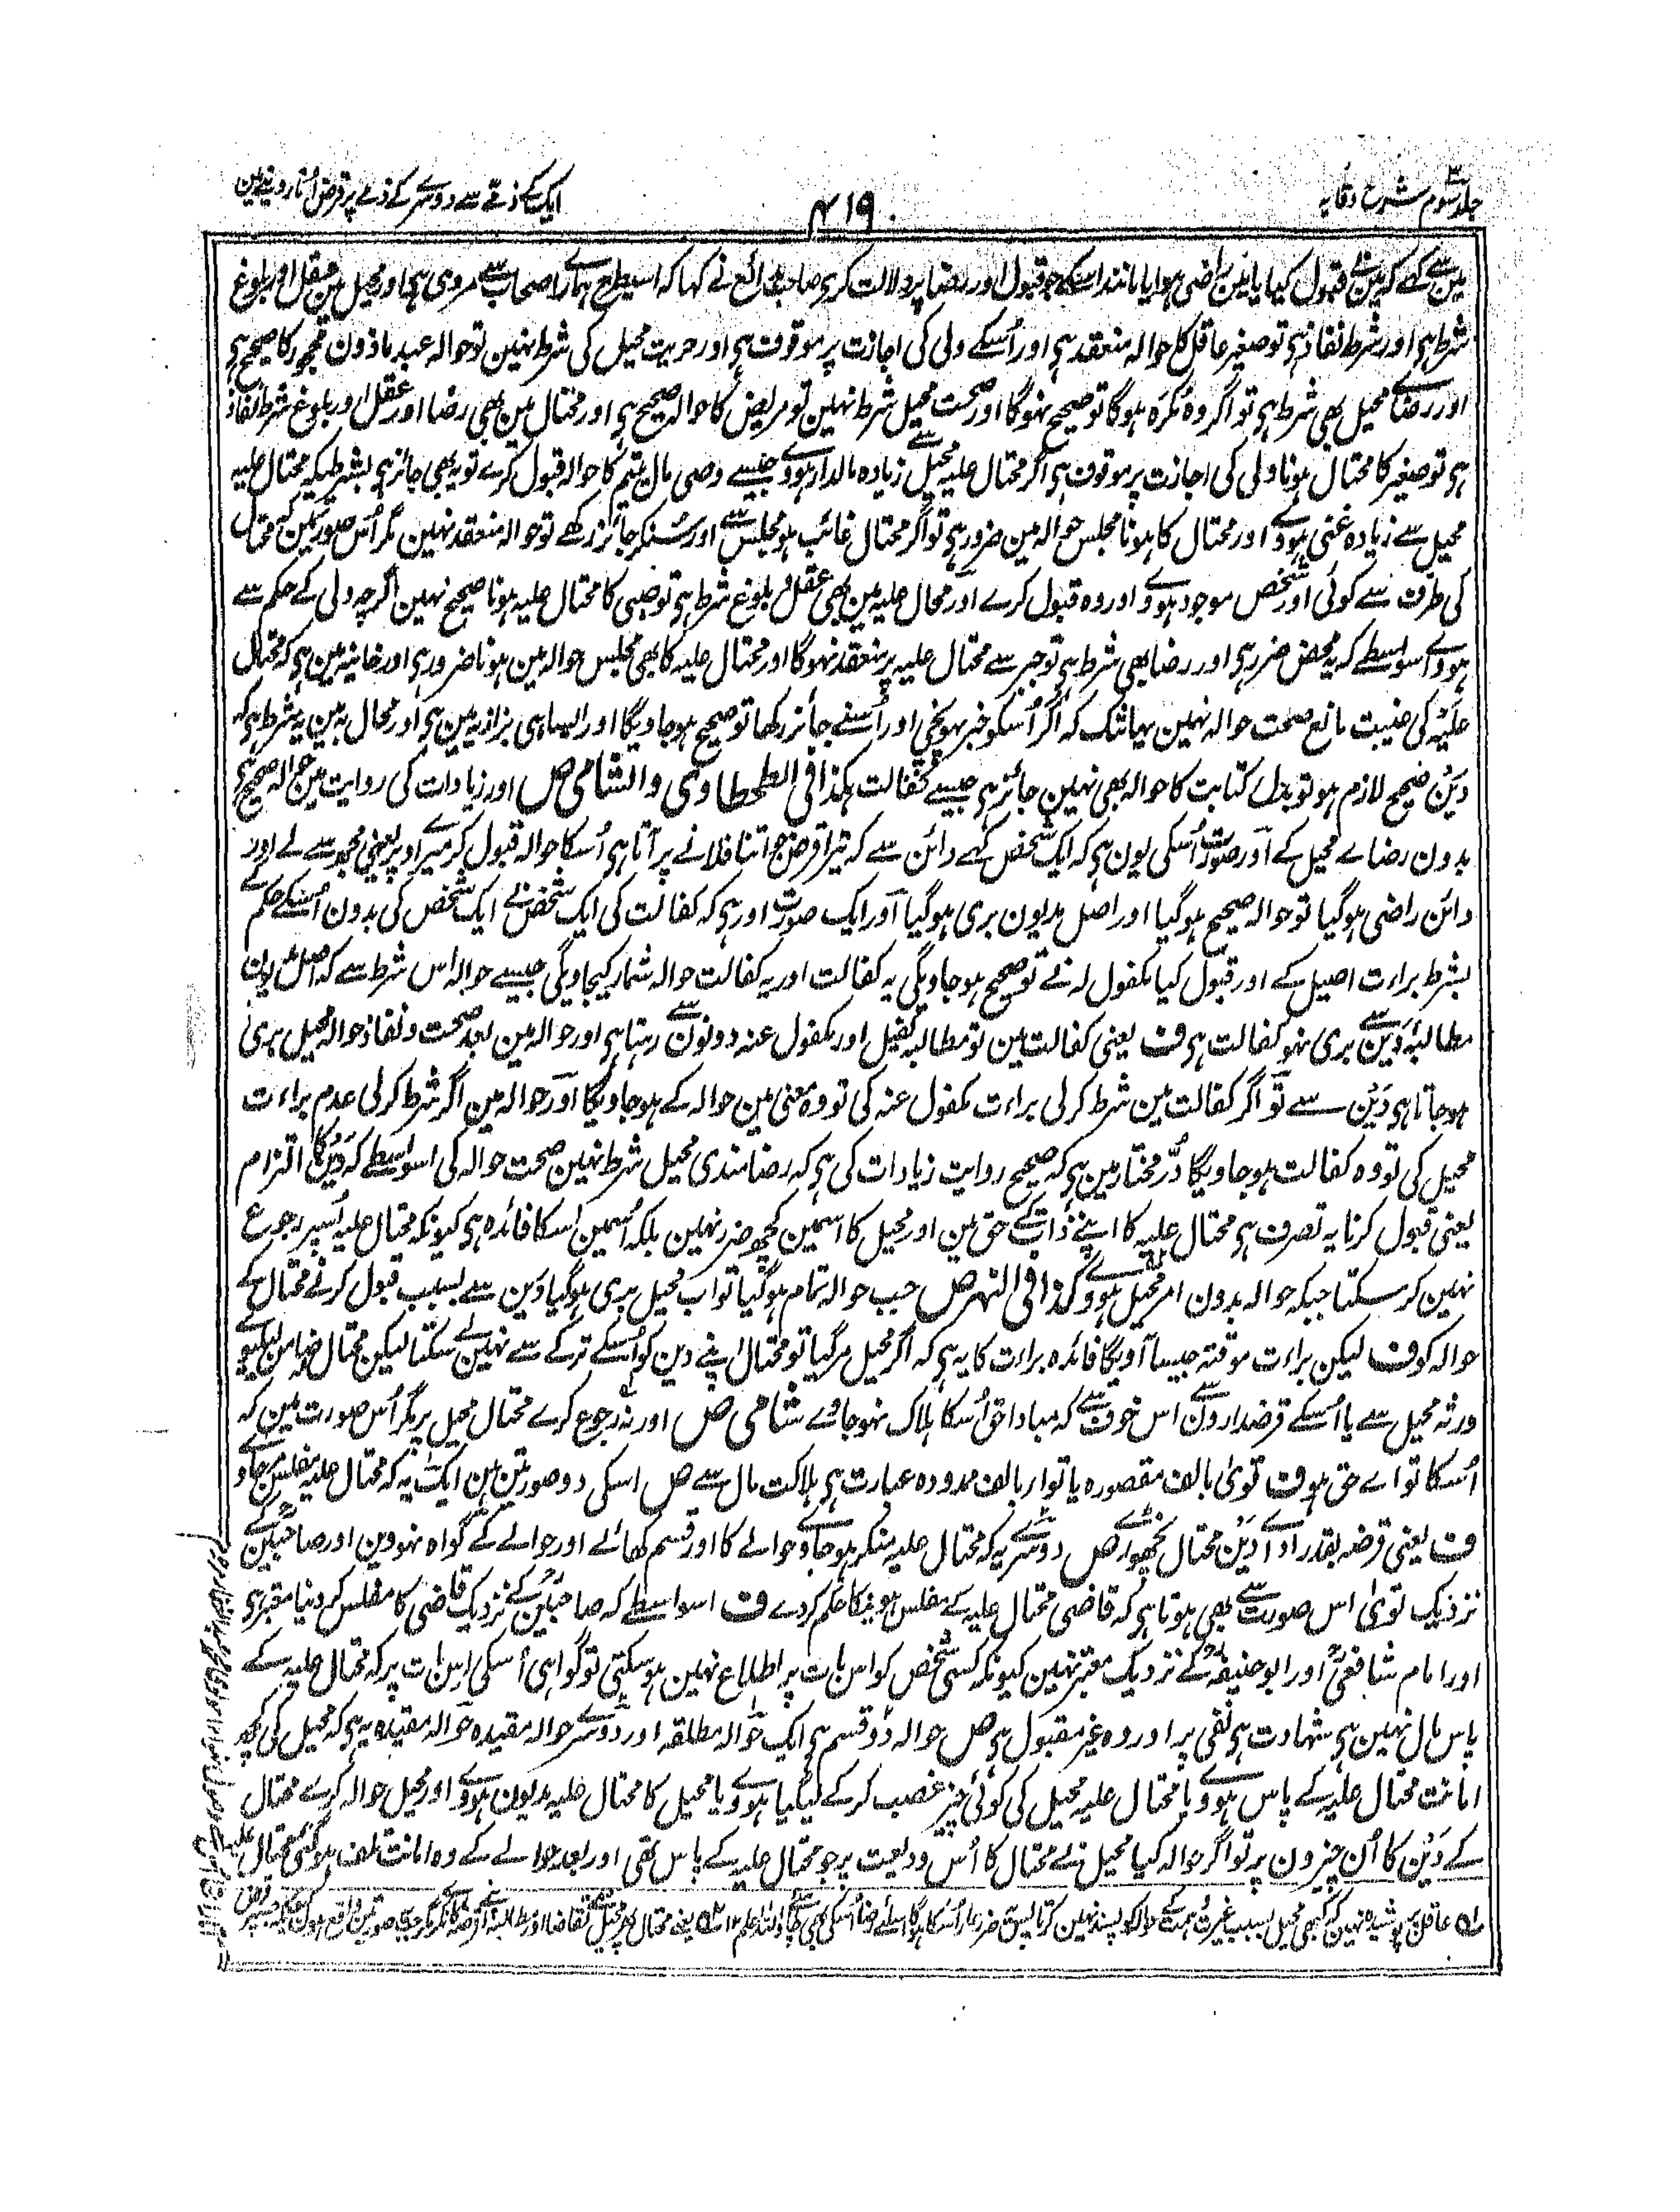 جلد سوم شرح وقایہ
۴۱۹
ایک کے ذمے سے دوسرے کے ذمے پر قرض اوتار دینے مین
مین سے کہے کہ مین نے قبول کیا یا مین راضی ہوا یا مانند اسکے جو قبول اور رضا پر دلالت کرے صاحب بدائع نے کہا کہ اسیطرح ہمارے اصحاب سے مروی ہی اور محیل مین عقل اور بلوغ
شرط ہی اور شرط نفاذ ہی تو صغیر عاقل کا حوالہ منعقد ہی اور اُسکے ولی کی اجازت پر موقوف ہی اور حریت محیل کی شرط نہین تو حوالہ عبد ماذون محجور کا صحیح ہی
اور رضاے محیل بھی شرط ہی تو اگر وہ مُکرَہ ہوگا تو صحیح نہوگا اور صحت محیل شرط نہین تو مریض کا حوالہ صحیح ہی اور محتال مین بھی رضا اور عقل اور بلوغ شرط نفاذ
ہی تو صغیر کا محتال ہونا ولی کی اجازت پر موقوف ہی اگر محتال علیہ محیل سے زیادہ مالدار ہووے جیسے وصی مال یتیم کا حوالہ قبول کرے تو یہ بھی جائز ہی بشرطیکہ محتال علیہ
محیل سے زیادہ غنی ہووے اور محتال کا ہونا مجلس حوالہ مین ضرور ہی تو اگر محتال غائب ہو مجلس سے اور سُنکر جائز رکھے تو حوالہ منعقد نہین مگر اُس صورت مین کہ محتال
کی طرف سے کوئی اور شخص موجود ہووے اور وہ قبول کرے اور محال علیہ مین بھی عقل و بلوغ شرط ہی تو صبی کا محتال علیہ ہونا صحیح نہین اگرچہ ولی کے حکم سے
ہووے اسواسطے کہ یہ محض ضرر ہی اور رضا بھی شرط ہی تو جبر سے محتال علیہ پر منعقد نہوگا اور محتال علیہ کا بھی مجلس حوالہ مین ہونا ضرور ہی اور خانیہ مین ہی کہ محتال
علیہ کی غیبت مانع صحت حوالہ نہین یہانتک کہ اگر اُسکو خبر پہونچی اور اُسنے جائز رکھا تو صحیح ہو جاویگا اور ایسا ہی بزازیہ مین ہی اور محال بہ مین یہ شرط ہی کہ
دَین صحیح لازم ہو تو بدل کتابت کا حوالہ بھی نہین جائز ہی جیسے کفالت ہکذا فی الطحطاوی والشامی ص اور زیادات کی روایت مین حوالہ صحیح ہی
بدون رضاے محیل کے اور صورت اُسکی یون ہی کہ ایک شخص کہے دائن سے کہ تیرا قرض جو اتنا فلانے پر آتا ہی اُسکا حوالہ قبول کر میرے اوپر یعنی مجھ سے لے اور
دائن راضی ہوگیا تو حوالہ صحیح ہوگیا اور اصل مدیون بری ہوگیا اور ایک صورت اور ہی کہ کفالت کی ایک شخص نے ایک شخص کی بدون اُسکے حکم کے
بشرط براءت اصیل کے اور قبول کیا مکفول لہ نے تو صحیح ہو جاویگی یہ کفالت اور یہ کفالت حوالہ شمار کیجاویگی جیسے حوالہ اس شرط سے کہ اصل مدیون
مطالبۂ دَین سے بری نہو کفالت ہی ف یعنی کفالت مین تو مطالبہ کفیل اور مکفول عنہ دونون سے رہتا ہی اور حوالہ مین بعد صحت و نفاذ حوالہ محیل بری
ہو جاتا ہی دَین سے تو اگر کفالت مین شرط کرلی براءت مکفول عنہ کی تو وہ معنی مین حوالہ کے ہو جاویگا اور حوالہ مین اگر شرط کرلی عدم براءت
محیل کی تو وہ کفالت ہو جاویگا دُرّ مختار مین ہی کہ صحیح روایت زیادات کی ہی کہ رضامندی محیل شرط نہین صحت حوالہ کی اسواسطے کہ دَین کا التزام
یعنی قبول کرنا یہ تصرف ہی محتال علیہ کا اپنے ذات کے حق مین اور محیل کا اسمین کچھ ضرر نہین بلکہ اُسمین اُسکا فائدہ ہی کیونکہ محتال علیہ اُسپر رجوع
نہین کر سکتا جبکہ حوالہ بدون امر محیل کے ہووے کذا فی النہر ص جب حوالہ تمام ہوگیا تو اب محیل بری ہوگیا دَین سے بسبب قبول کرنے محتال کے
حوالہ کو ف لیکن براءت موقتہ جیسا آویگا فائدہ براءت کا یہ ہی کہ اگر محیل مرگیا تو محتال اپنے دین کو اُسکے ترکے سے نہین لے سکتا لیکن محتال ضامن لیکیو
ورثہ محیل سے یا اُسکے قرضدارون سے اس خوف سے کہ مبادا حق اُسکا ہلاک نہو جاوے شامی ص اور نہ رجوع کرے محتال محیل پر مگر اُس صورت مین کہ
اُسکا تواے حق ہو ف تویٰ بالف مقصورہ یا تواء بالف ممدودہ عبارت ہی ہلاکت مال سے ص اسکی دو صورتین ہین ایک یہ کہ محتال علیہ مفلس مر جاوے
ف یعنی قرضہ بقدر اداے دَین محتال نچھوڑے ص دوسرے یہ کہ محتال علیہ منکر ہو جاوے حوالے کا اور قسم کھالے اور حوالے کے گواہ نہووین اور صاحبین کے
نزدیک تویٰ اس صورت سے بھی ہوتا ہی کہ قاضی محتال علیہ کے مفلس ہونیکا حکم کردے ف اسواسطے کہ صاحبین کے نزدیک قاضی کا مفلس کر دینا معتبر ہی
اور امام شافعی اور ابو حنیفہ کے نزدیک معتبر نہین کیونکہ کسی شخص کو اس بات پر اطلاع نہین ہو سکتی تو گواہی اُسکی اس بات پر کہ محتال علیہ کے
پاس مال نہین ہی شہادت ہی نفی پر اور وہ غیر مقبول ہی ص حوالہ دو قسم ہی ایک حوالہ مطلقہ اور دوسرے حوالہ مقیدہ حوالہ مقیدہ یہ ہی کہ محیل کی کچھ
امانت محتال علیہ کے پاس ہووے یا محتال علیہ محیل کی کوئی چیز غصب کر کے لیگیا ہووے یا محیل کا محتال علیہ مدیون ہووے اور محیل حوالہ کرے محتال
کے دَین کا اُن چیزون پر تو اگر حوالہ کیا محیل نے محتال کا اُس ودیعت پر جو محتال علیہ کے پاس تھی اور بعد حوالے کے وہ امانت تلف ہو گئی محتال علیہ
عاقل پر پوشیدہ نہین کہ کبھی محیل بسبب غیرت ہمت کے حوالہ کو پسند نہین کرتا